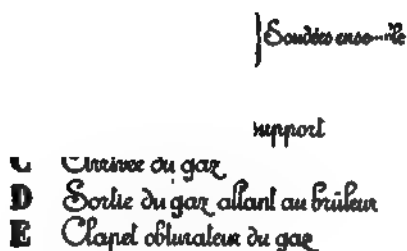 Soudés ensemble
support
C Arrivée du gaz
D Sortie du gaz allant au brûleur
E Clapet obturateur du gaz